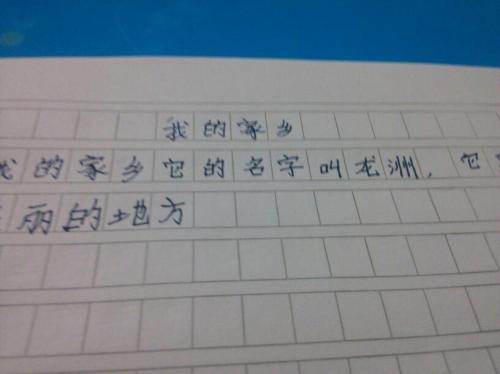 我的家乡
我的家乡它的名字叫龙洲，它
丽的地方